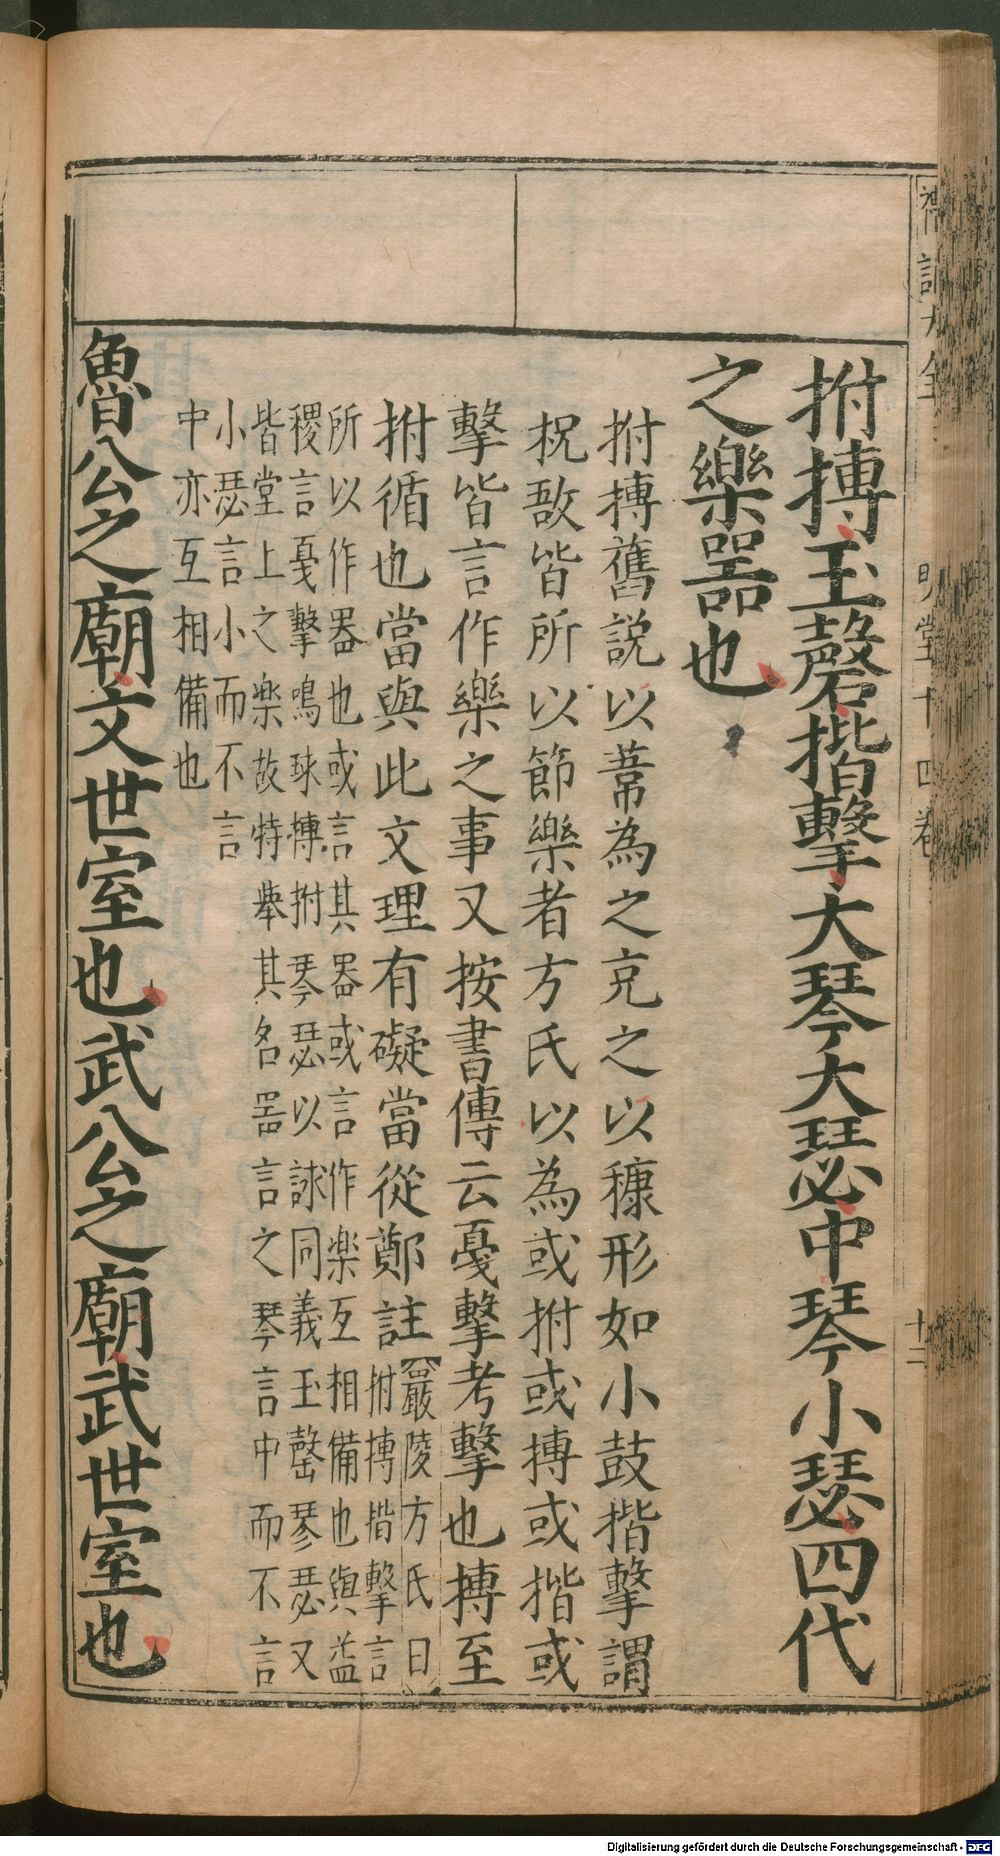 拊搏玉磬揩擊大琴大瑟中琴小瑟四代
之樂器也
拊搏舊說以葦為之充之以穅形如小鼓揩擊謂
柷敔皆所以節樂者方氏以為或拊或搏或揩或
擊皆言作樂之事又按書傳云戞擊考擊也搏至
拊循也當與此文理有礙當從鄭註
嚴陵方氏曰
拊搏揩擊言
所以作器也或言其器或言作楽互相備也與益
稷言戞擊鳴球搏拊琴瑟以詠同義玉磬琴瑟又
皆堂上之楽故特舉其名器言之琴言中而不言
小瑟言小而不言
中亦互相備也
魯公之廟文世室也武公之廟武世室也
明堂十四卷
十二
Digitalisierung gefördert durch die Deutsche Forschungsgemeinschaft - DFG